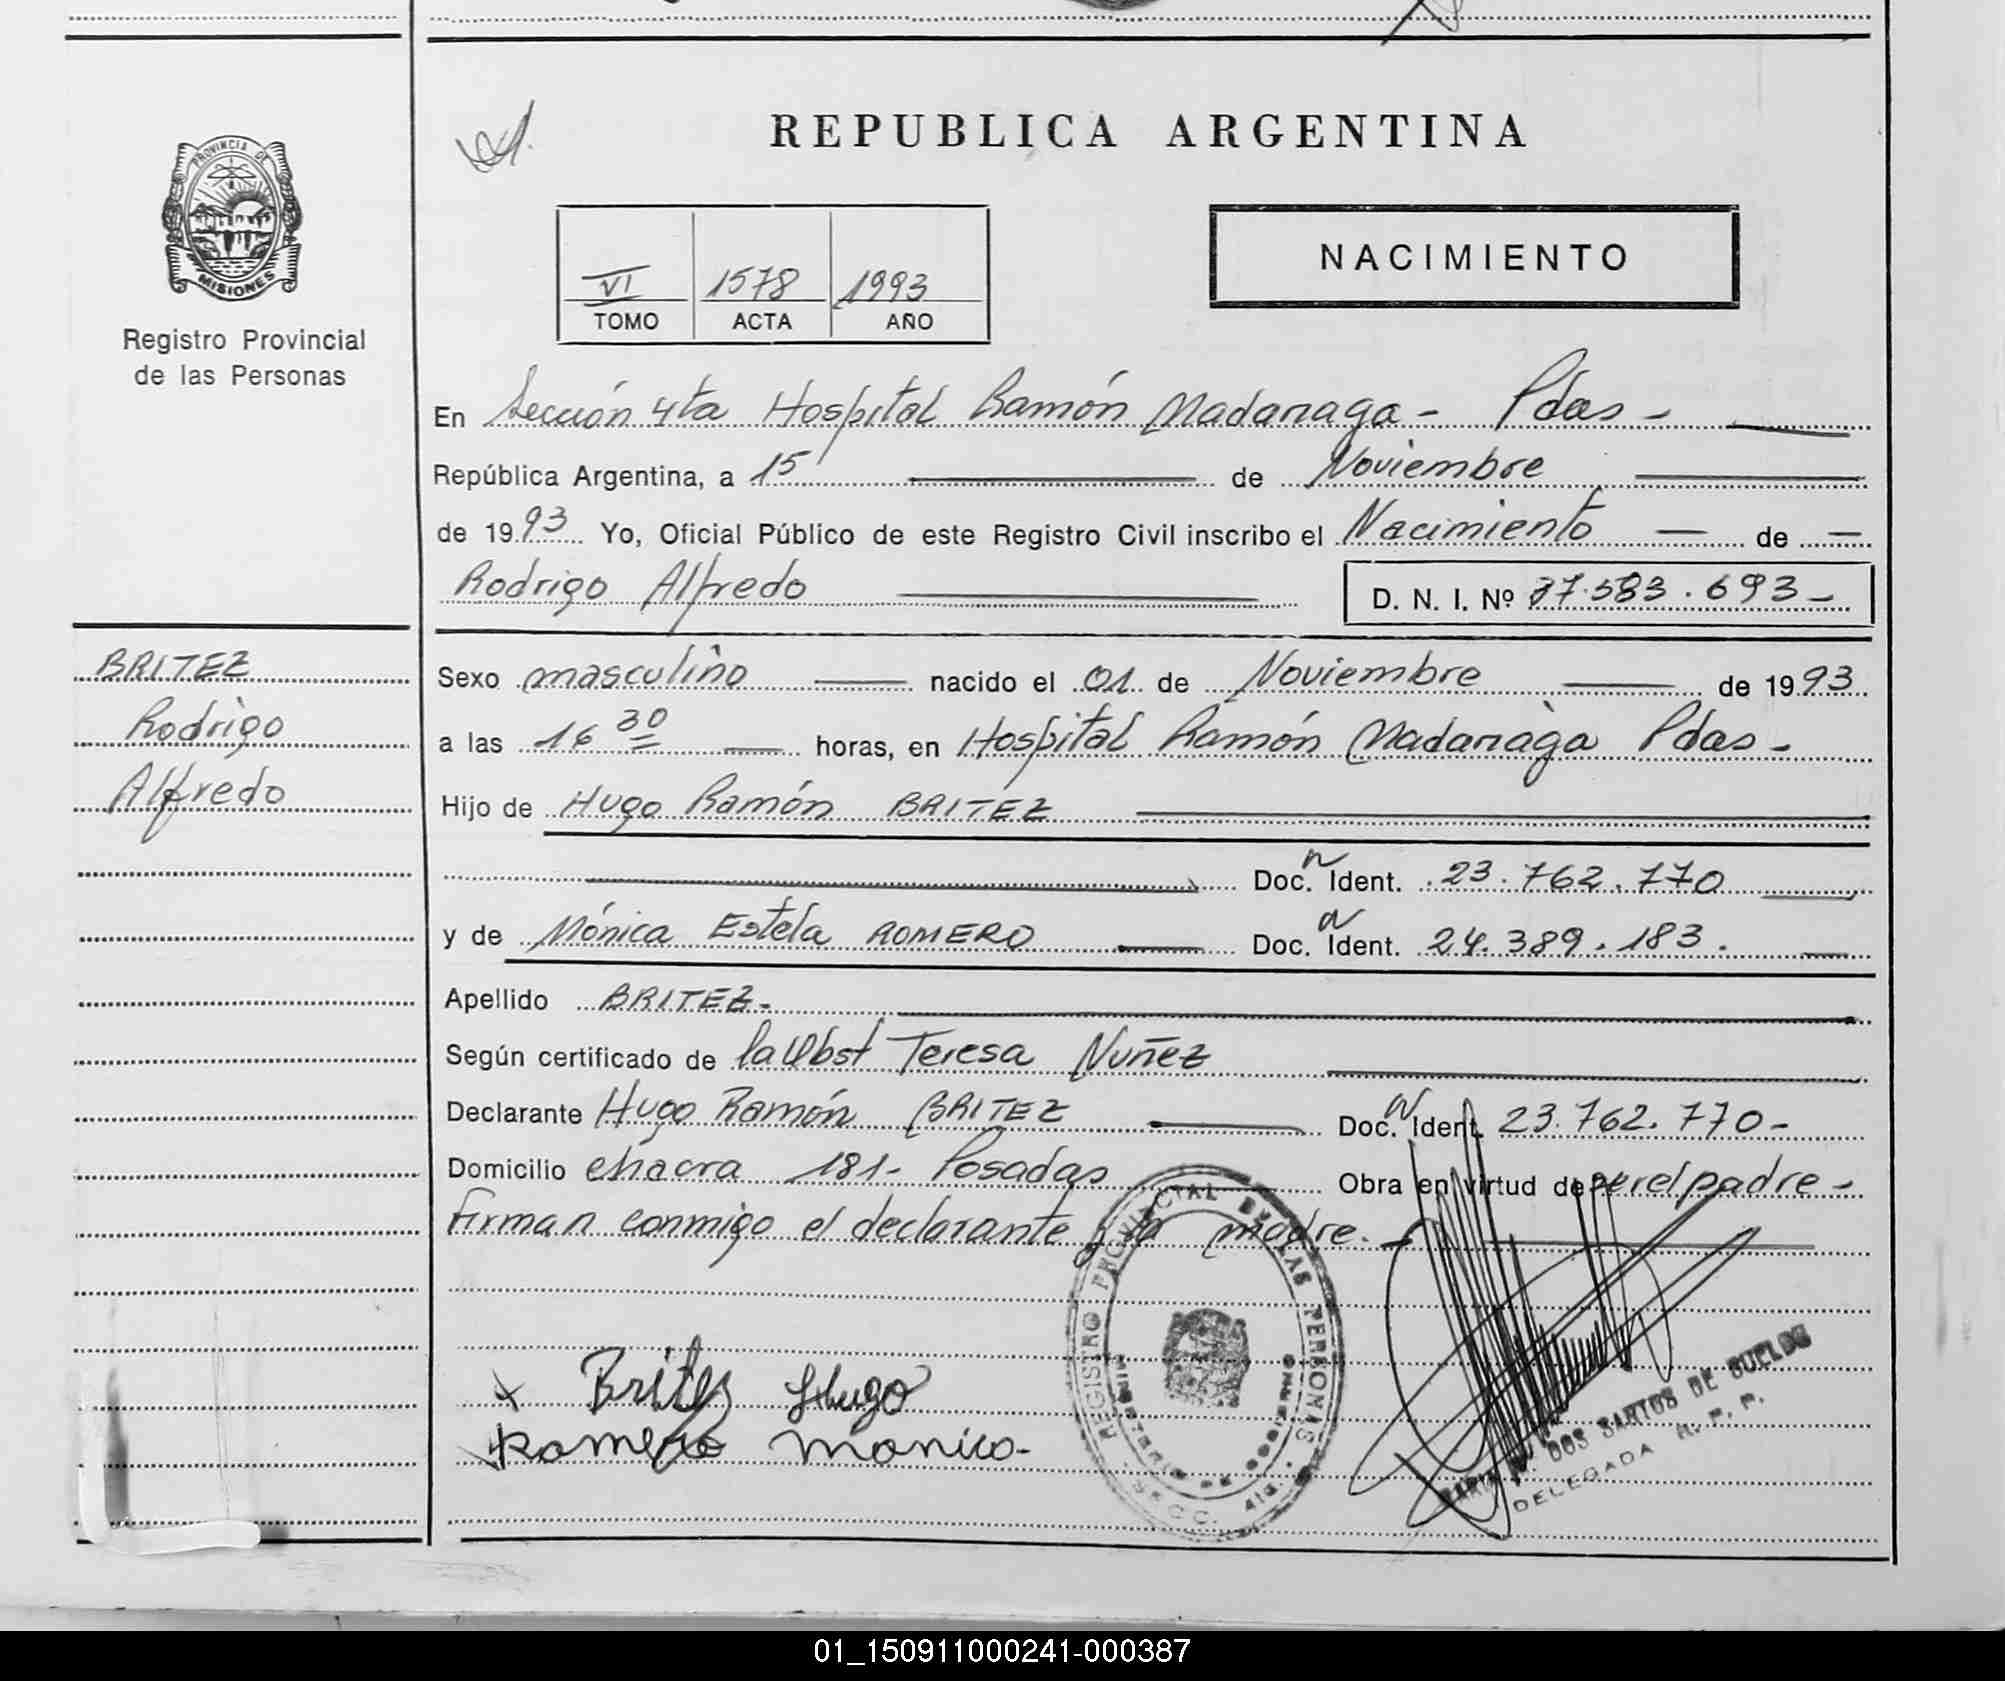 REPUBLICA ARGENTINA
PROVINCIA DE
MISIONES
Registro Provincial
de las Personas
NACIMIENTO
VI 1578 1993
TOMO ACTA AÑO
En Sección 4ta Hospital Ramón Madariaga - Pdas -
República Argentina, a 15 de Noviembre
de 1993 Yo, Oficial Público de este Registro Civil inscribo el Nacimiento — de —
Rodrigo Alfredo D. N. I. Nº 37.583.693-
BRITEZ
Rodrigo
Alfredo
Sexo masculino nacido el 01 de Noviembre de 1993
a las 16 30 horas, en Hospital Ramón Madariaga Pdas -
Hijo de Hugo Ramón BRITEZ
Doc. Ident. 23.762.770
y de Mónica Estela ROMERO Doc. Ident. 24.389.183.
Apellido BRITEZ-
Según certificado de la Obst Teresa Nuñez
Declarante Hugo Ramón BRITEZ Doc. Ident. 23.762.770-
Domicilio chacra 181- Posadas Obra en virtud de ser el padre-
Firman conmigo el declarante y la madre.-
REGISTRO PROVINCIAL DE LAS PERSONAS
MINISTERIO DE GOBIERNO
SECC. 4ta.
x Britez Hugo
Romero Monica-
DOS SANTOS DE SUELDO
DELEGADA R. P. P.
01_150911000241-000387